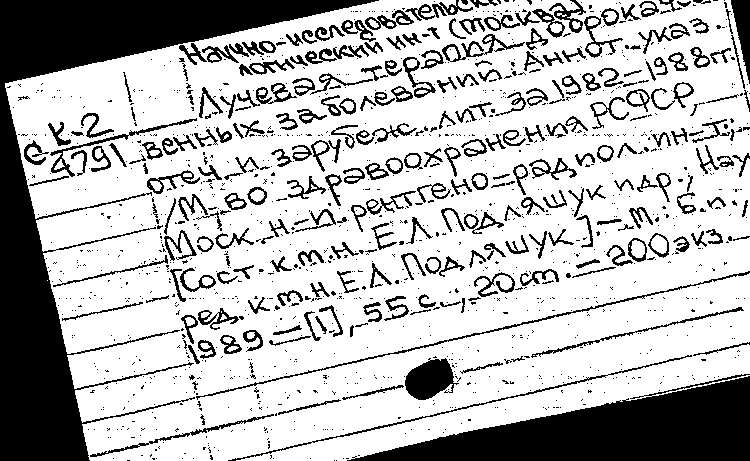 Научно-исследовательский
логический ин-т (Москва).
Лучевая терапия доброкачест
венных заболеваний: Аннот. указ.
отеч. и зарубеж. лит. за 1982-1988гг.
/М-во здравоохранения РСФСР,
Моск. н.-и. рентгено=радиол. ин-т;
[Сост. к.м.н. Е.Л. Подляшук и др.; Нау
ред. к.м.н. Е.Л. Подляшук]. - М.: Б.и.,
1989. - [1], 55 с.; 20 см. - 200 экз.
К-2
с 4791